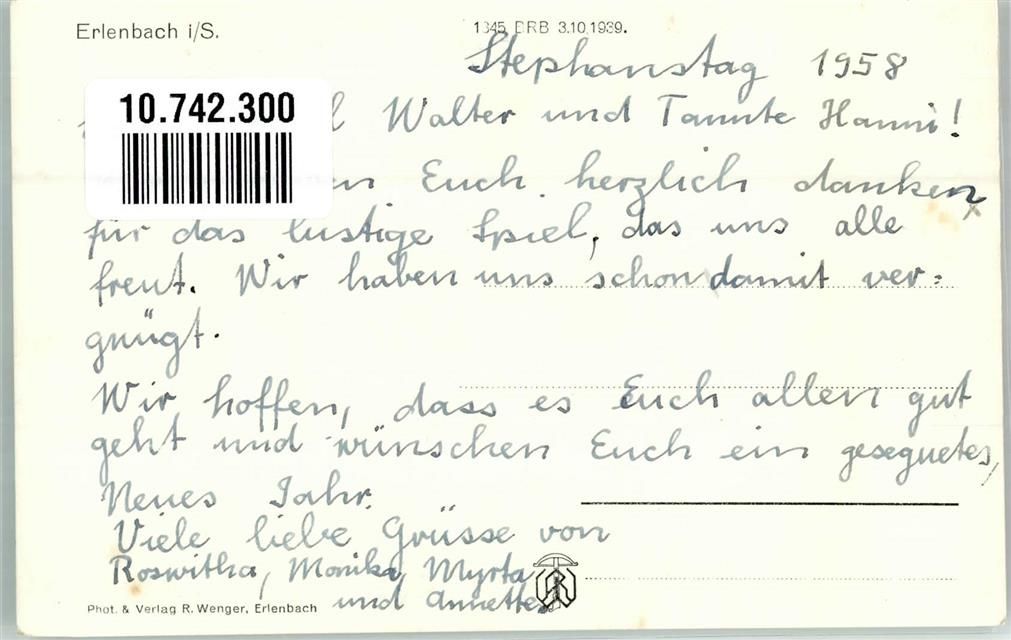 Erlenbach i/S.
1345 BRB 3.10.1939.
Stephanstag 1958
10.742.300
Walter und Tannte Hanni!
Euch herzlich danken
für das lustige Spiel, das uns alle
freut. Wir haben uns schon damit ver=
gnügt.
Wir hoffen, dass es Euch allen gut
geht und wünschen Euch ein gesegnetes,
Neues Jahr.
Viele liebe Grüsse von
Roswitha, Monika, Myrta
und Annette
Phot. & Verlag R. Wenger, Erlenbach